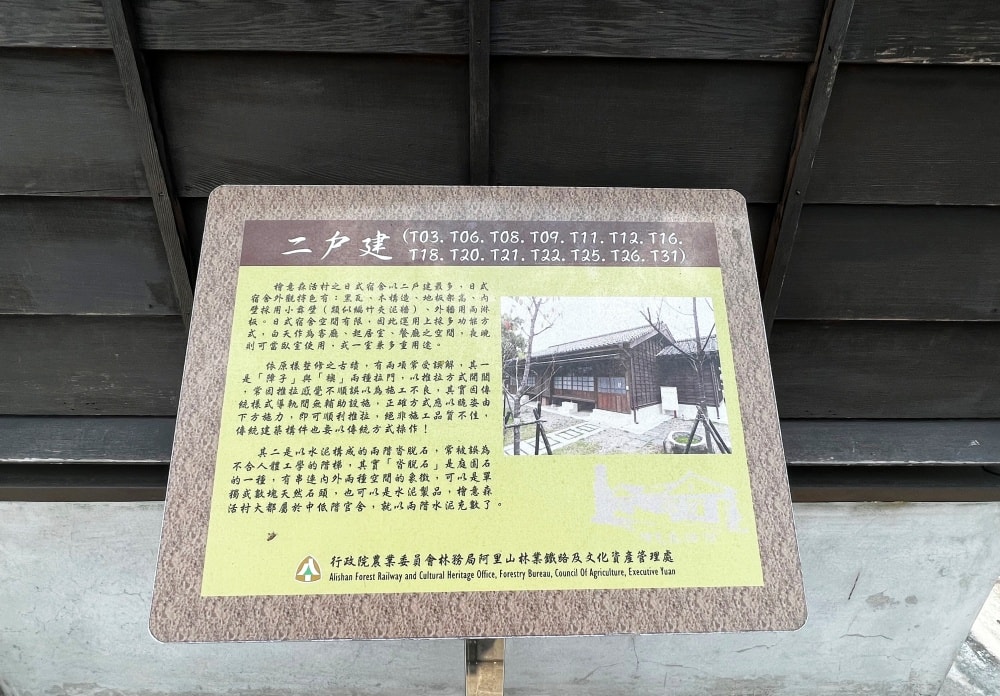 二戶建 (T03. T06. T08. T09. T11. T12. T16.
T18. T20. T21. T22. T25. T26. T31)
檜意森活村之日式宿舍以二戶建最多，日式
宿舍外觀特色有：黑瓦、木構造、地板架高、內
壁採用小舞壁（類似編竹夾泥牆）、外牆用雨淋
板。日式宿舍空間有限，因此運用上採多功能方
式，白天作為客廳、起居室、餐廳之空間，夜晚
則可當臥室使用，或一室兼多重用途。
依原樣整修之古蹟，有兩項常受誤解，其一
是「障子」與「襖」兩種拉門，以推拉方式開關
，常因推拉感覺不順誤以為施工不良，其實因傳
統樣式導軌間無輔助設施，正確方式應以跪姿由
下方施力，即可順利推拉，絕非施工品質不佳，
傳統建築構件也要以傳統方式操作！
其二是以水泥構成的兩階沓脫石，常被誤為
不合人體工學的階梯，其實「沓脫石」是庭園石
的一種，有串連內外兩種空間的象徵，可以是單
獨或數塊天然石頭，也可以是水泥製品，檜意森
活村大都屬於中低階官舍，就以兩階水泥充數了。
行政院農業委員會林務局阿里山林業鐵路及文化資產管理處
Alishan Forest Railway and Cultural Heritage Office, Forestry Bureau, Council Of Agriculture, Executive Yuan